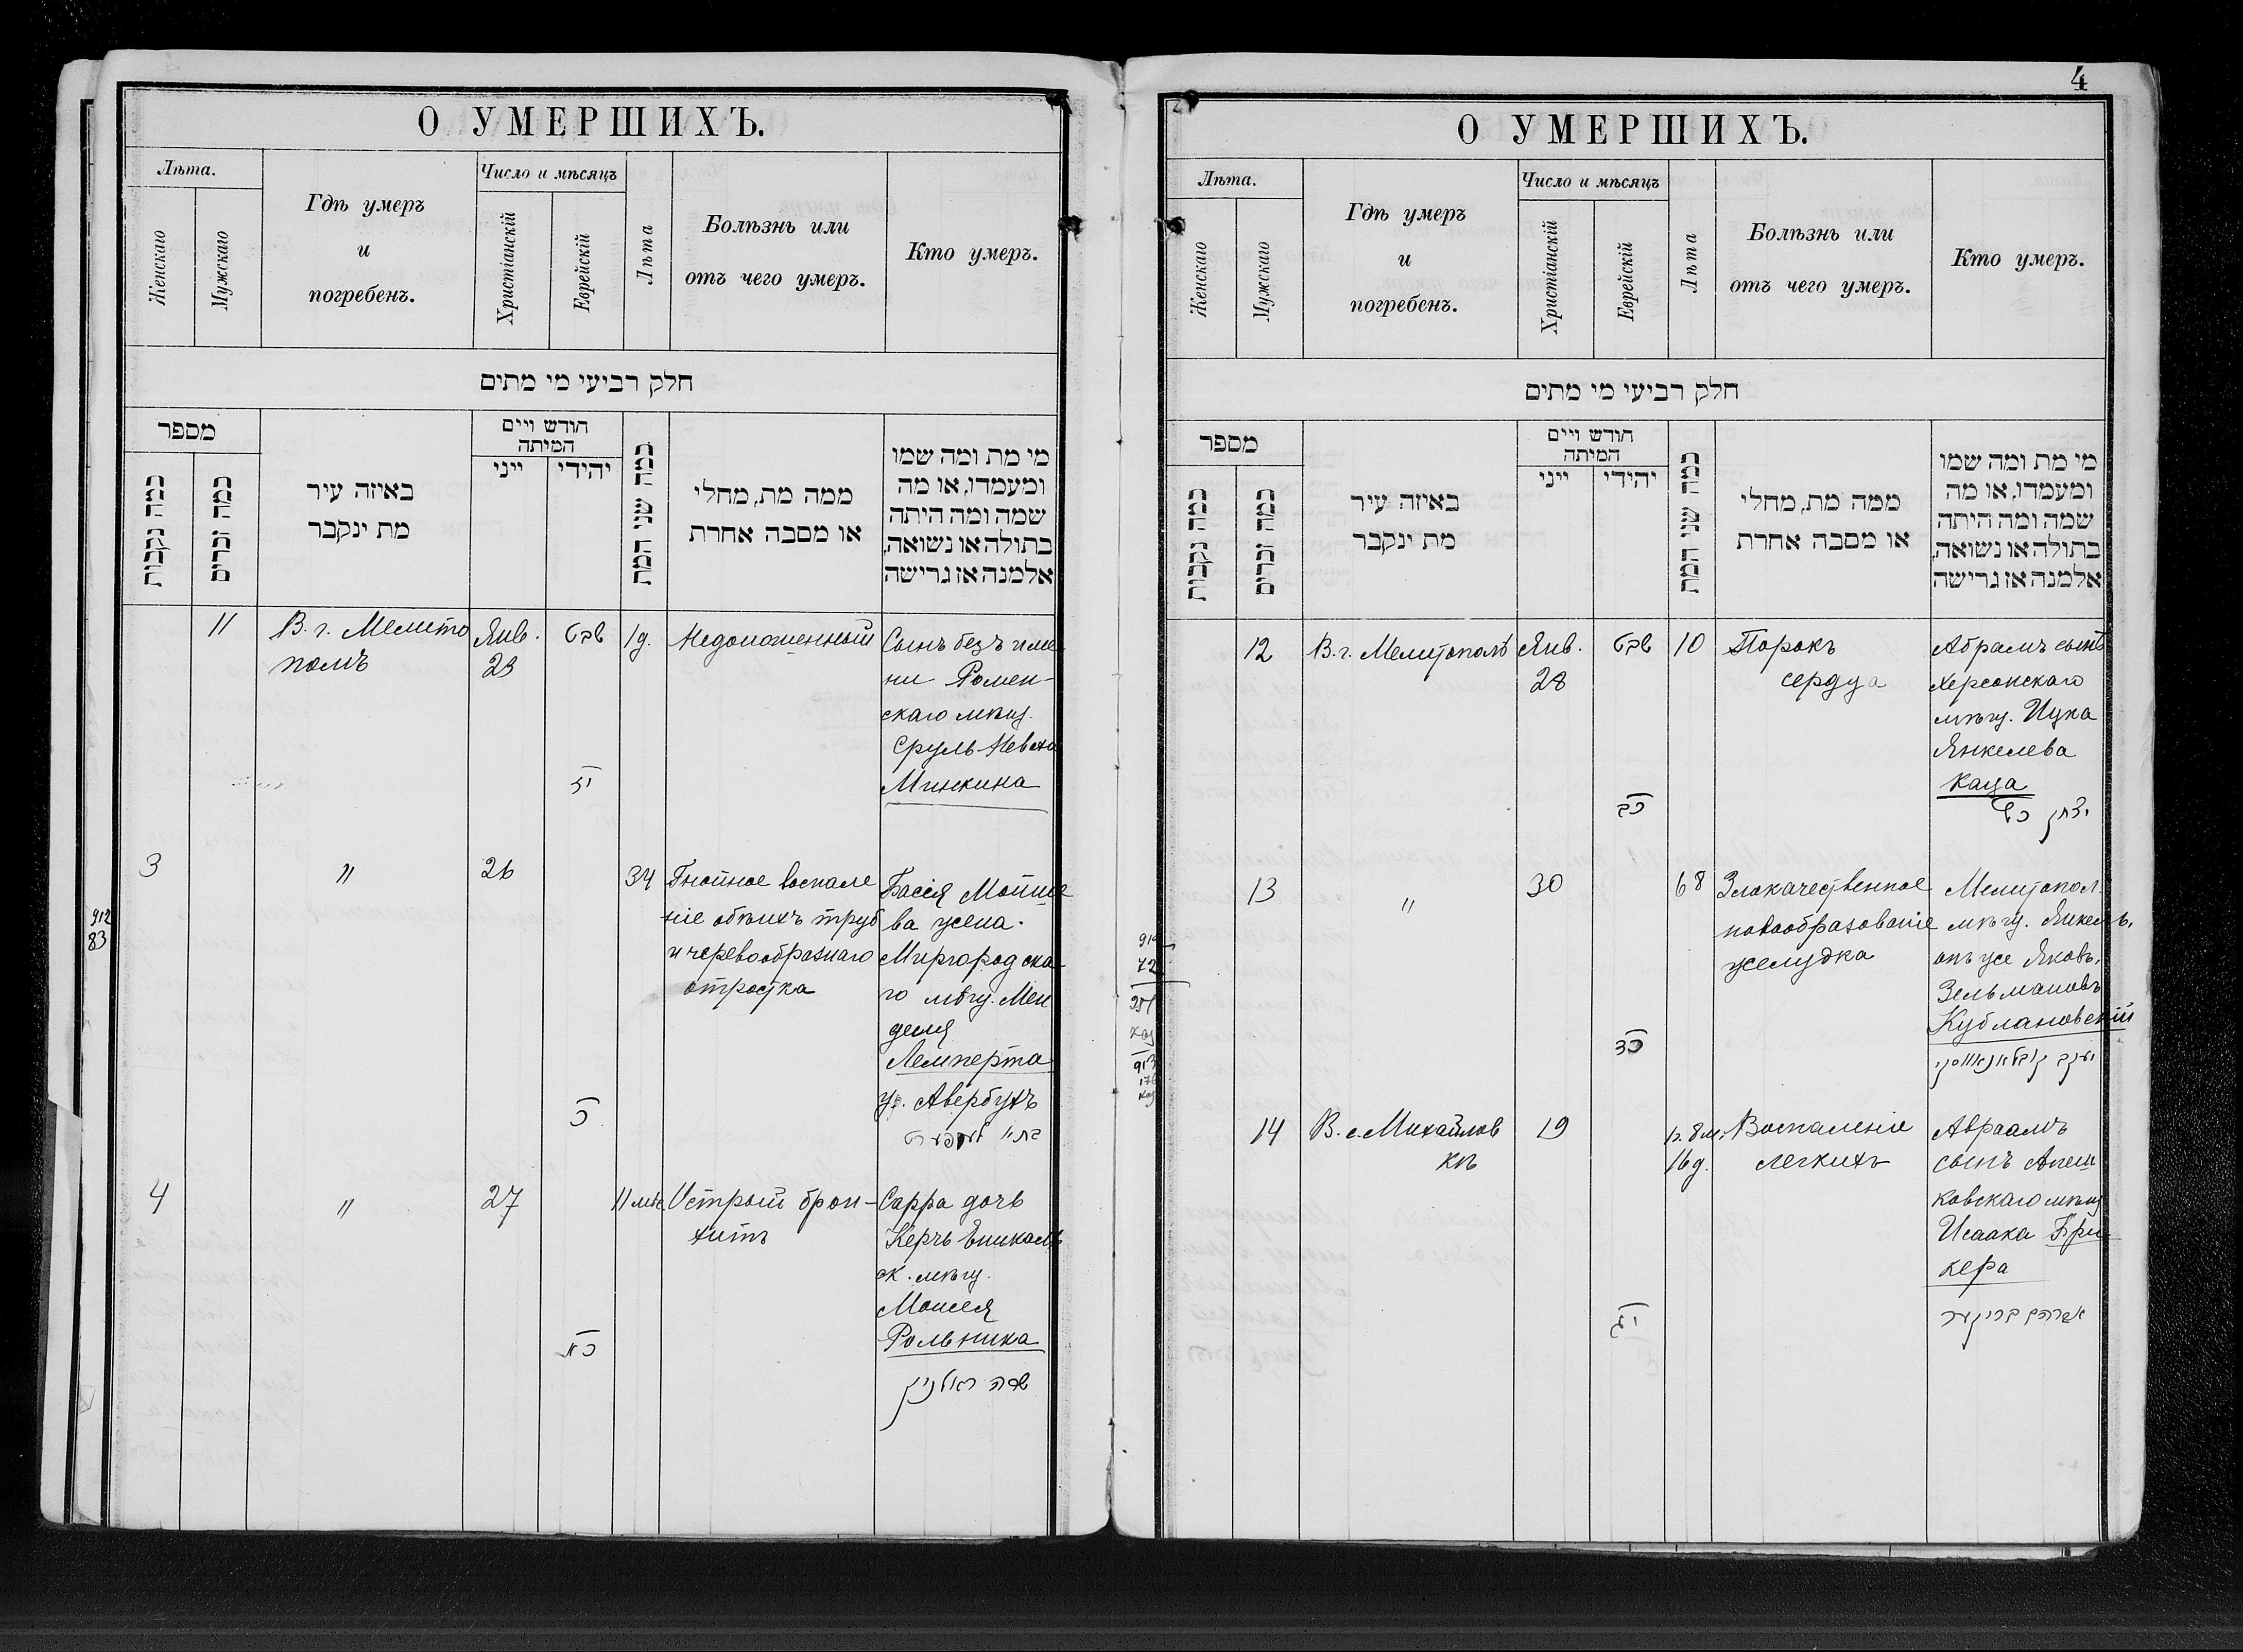 О УМЕРШИХЪ.
Лѣта.
Женскаго
Мужскаго
Гдѣ умеръ
и
погребенъ.
Число и мѣсяцъ
Христіанскій
Еврейскій
Лѣта
Болѣзнь или
отъ чего умеръ.
Кто умеръ.
חלק רביעי מי מתים
מספר
כמה נקבות
כמה זכרים
באיזה עיר
מת ינקבר
חודש ויים
המיתה
ייני
יהידי
כמה שני המת
ממה מת, מחלי
או מסבה אחרת
מי מת ומה שמו
ומעמדו, או מה
שמה ומה היתה
בתולה או נשואה,
אלמנה אז גרישה
11
В. г. Мелито
полѣ
Янв.
23
שבט
יז
1д.
Недоношенный
Сынъ безъ име
ни Ромен-
скаго мѣщ.
Сруль Невха
Минкина
3
"
26
כ
34
Гнойное воспале
ніе обѣихъ труб
и червообразнаго
отростка
Бася Мойше
ва жена
Миргородска-
го мѣщ. Мен
деля
Лемперта
ур. Авербухъ
4
"
27
כא
11 мѣс
Острый брон-
хитъ
Сарра дочь
Керчь Еникаль
ск. мѣщ.
Моисея
Рольника
שרה ראלניק
912
83
4
О УМЕРШИХЪ.
Лѣта.
Женскаго
Мужскаго
Гдѣ умеръ
и
погребенъ.
Число и мѣсяцъ
Христіанскій
Еврейскій
Лѣта
Болѣзнь или
отъ чего умеръ.
Кто умеръ.
חלק רביעי מי מתים
מספר
כמה נקבות
כמה זכרים
באיזה עיר
מת ינקבר
חודש ויים
המיתה
ייני
יהידי
כמה שני המת
ממה מת, מחלי
או מסבה אחרת
מי מת ומה שמו
ומעמדו, או מה
שמה ומה היתה
בתולה או נשואה,
אלמנה אז גרישה
12
В. г. Мелитополѣ
Янв.
28
שבט
כב
10
Порокъ
сердца
Абрамъ сынъ
Херсонскаго
мѣщ. Ицка
Янкелева
Каца
13
"
30
כד
68
Злокачественное
новообразованіе
желудка
Мелитопол.
мѣщ. Янкель,
онъ же Яковъ,
Зельмановъ
Кублановскій
יעקב קובלאנאווסקי
14
В. с. Михайлов
кѣ
19
יג
1г. 8 м.
16 д.
Воспаленіе
легкихъ
Авраамъ
сынъ Алеш
ковскаго мѣщ
Исаака Бри
кера
אברהם בריקער